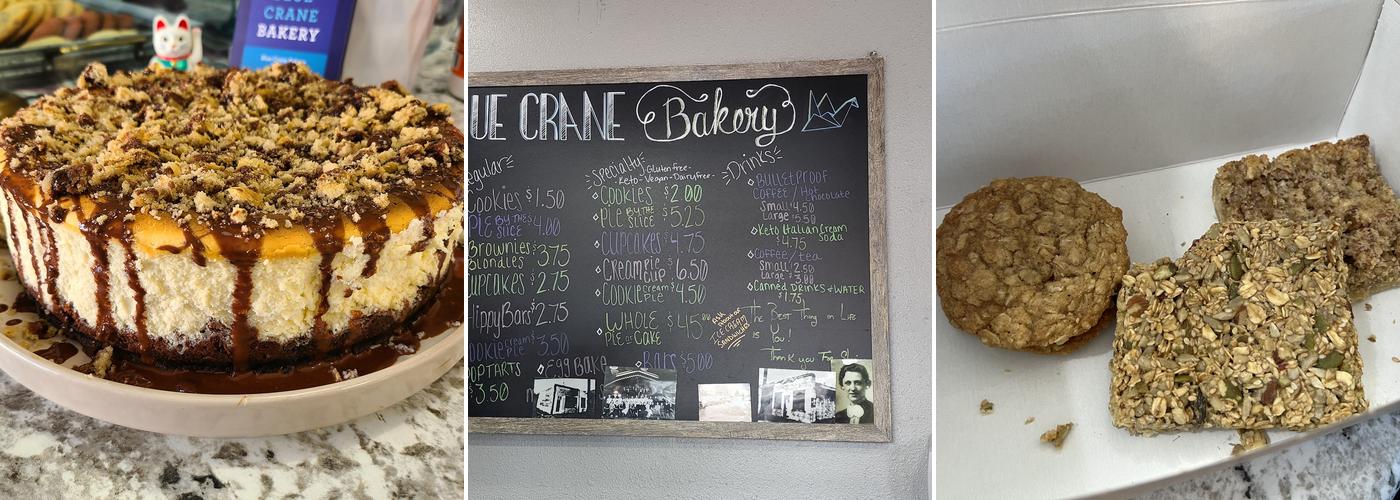 CRANE
BAKERY
UE CRANE Bakery
egular
Cookies $1.50
PIE BY THE SLICE $4.00
Brownies
Blondies $3.75
Cupcakes $2.75
HippyBars $2.75
Cookie Cream Pie 3.50
OPTARTS
$3.50
Specialty Gluten free -
Keto - Vegan - Dairy free -
COOKIES $2.00
PIE BY THE SLICE $5.25
CUPCAKES $4.75
CREAMPIE CUP $6.50
COOKIE Cream PIE $4.50
WHOLE
PIE or CAKE $45.00
EGG BAKE
Bars $5.00
ICE CREAM
SANDWICHES
Drinks
BULLETPROOF
COFFEE / Hot Chocolate
Small $4.50
Large $5.50
Keto Italian Cream Soda
$4.75
Coffee/tea
Small $2.50
Large $3.00
Canned DRINKS + WATER
$1.75
The Best Thing in Life
is You!
Thank you